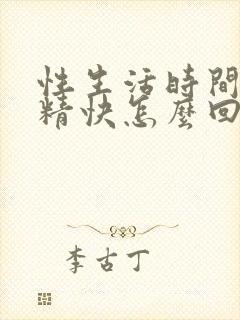 性生活時間
精快怎麼回
李古丁